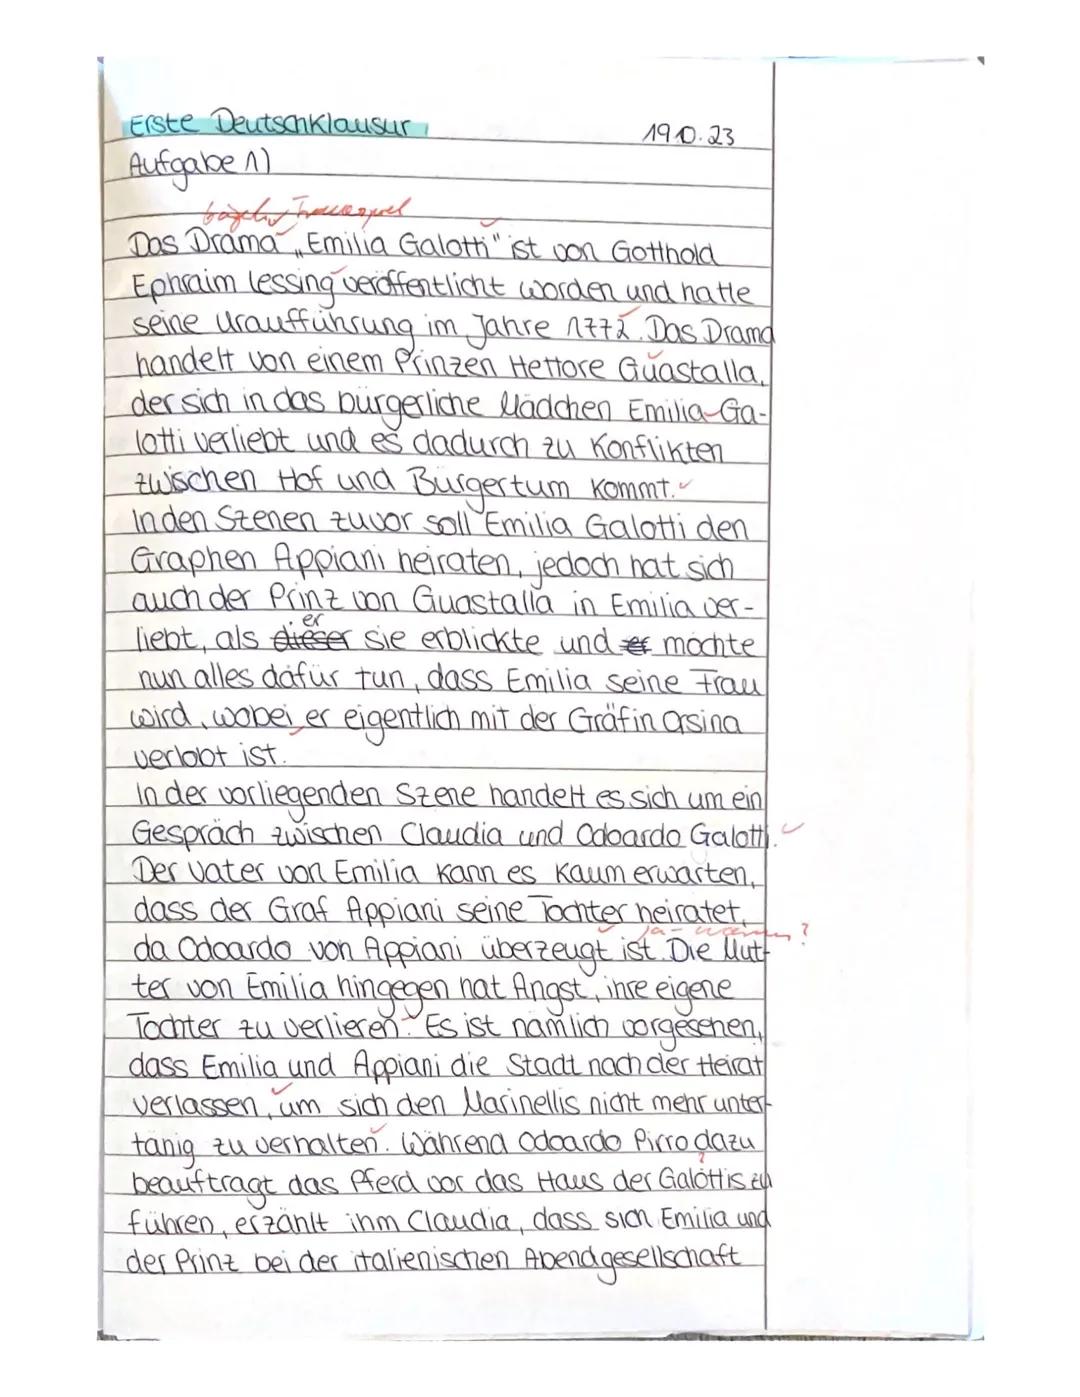 Erste Deutschklausur 19.10.23
Aufgabe 1)
Das Drama „Emilia Galotti" ist von Gotthold
Ephraim Lessing veröffentlicht worden und hatte
seine Uraufführung im Jahre 1772. Das Drama
handelt von einem Prinzen Hettore Guastalla,
der sich in das bürgerliche Mädchen Emilia Ga-
lotti verliebt und es dadurch zu Konflikten
zwischen Hof und Bürgertum kommt.
In den Szenen zuvor soll Emilia Galotti den
Graphen Appiani heiraten, jedoch hat sich
auch der Prinz von Guastalla in Emilia ver-
er
liebt, als dieser sie erblickte und er möchte
nun alles dafür tun, dass Emilia seine Frau
wird, wobei er eigentlich mit der Gräfin Orsina
verlobt ist.
In der vorliegenden Szene handelt es sich um ein
Gespräch zwischen Claudia und Odoardo Galotti.
Der Vater von Emilia kann es kaum erwarten,
dass der Graf Appiani seine Tochter heiratet,
ja - warum?
da Odoardo von Appiani überzeugt ist. Die Mut-
ter von Emilia hingegen hat Angst, ihre eigene
Tochter zu verlieren. Es ist nämlich vorgesehen,
dass Emilia und Appiani die Stadt nach der Heirat
verlassen, um sich den Marinellis nicht mehr unter-
tänig zu verhalten. Während Odoardo Pirro dazu
?
beauftragt das Pferd vor das Haus der Galottis zu
führen, erzählt ihm Claudia, dass sich Emilia und
der Prinz bei der italienischen Abendgesellschaft